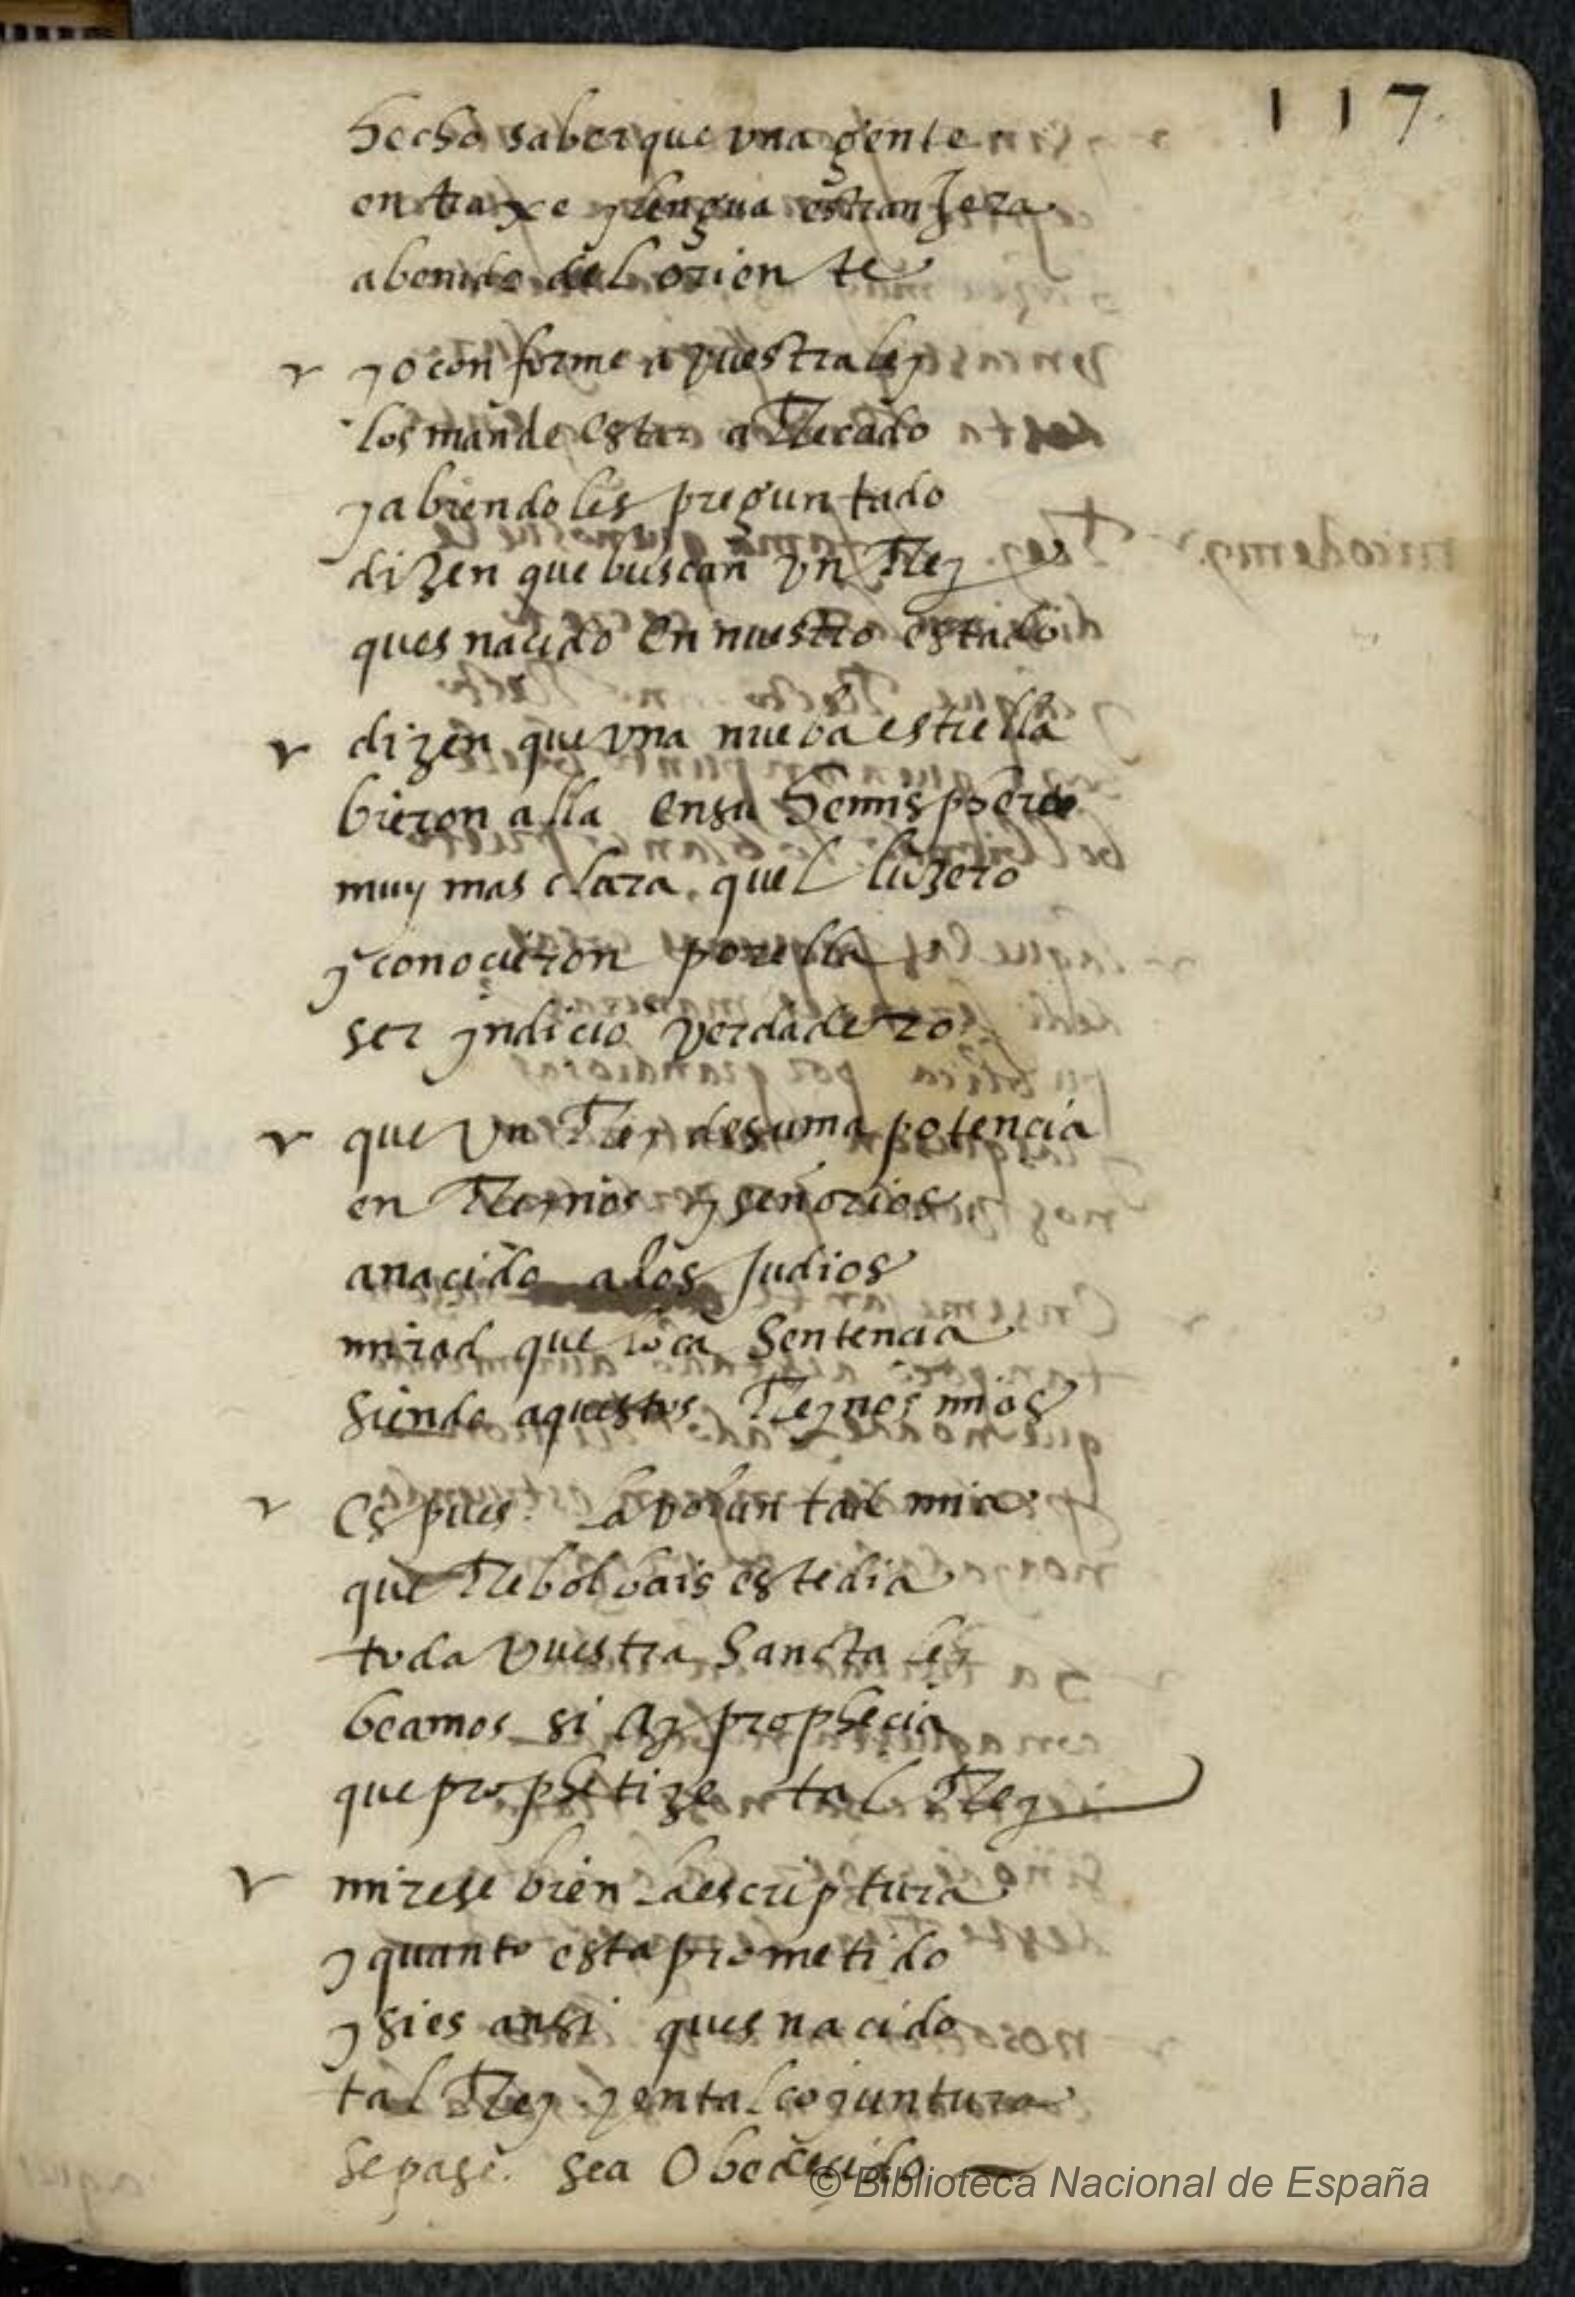 117
hecho saber que vna gente
en traxe y lengua estranJera
a benido del oriente
yo con forme a vuestra ley
los mande estar a Recado
y abiendoles preguntado
dizen que buscan vn Rey
ques nacido en nuestro estado
dizen que vna nueba estrella
bieron alla en su hemispherio
muy mas clara quel luzero
y conoçieron por ella
ser yndicio verdadero
que vn Rey de suma potencia
en Reynos y señorios
a nacido a los Judios
mirad que loca sentencia
siendo aquestos Reynos mios
es pues la voluntad mia
que Rebolbais este dia
toda vuestra sancta ley
beamos si ay prophecia
que prophetize tal Rey
mirese bien la escriptura
y quanto esta prometido
y si es ansi ques nacido
tal Rey y en tal cojuntura
sepase sea obedecido
© Biblioteca Nacional de España